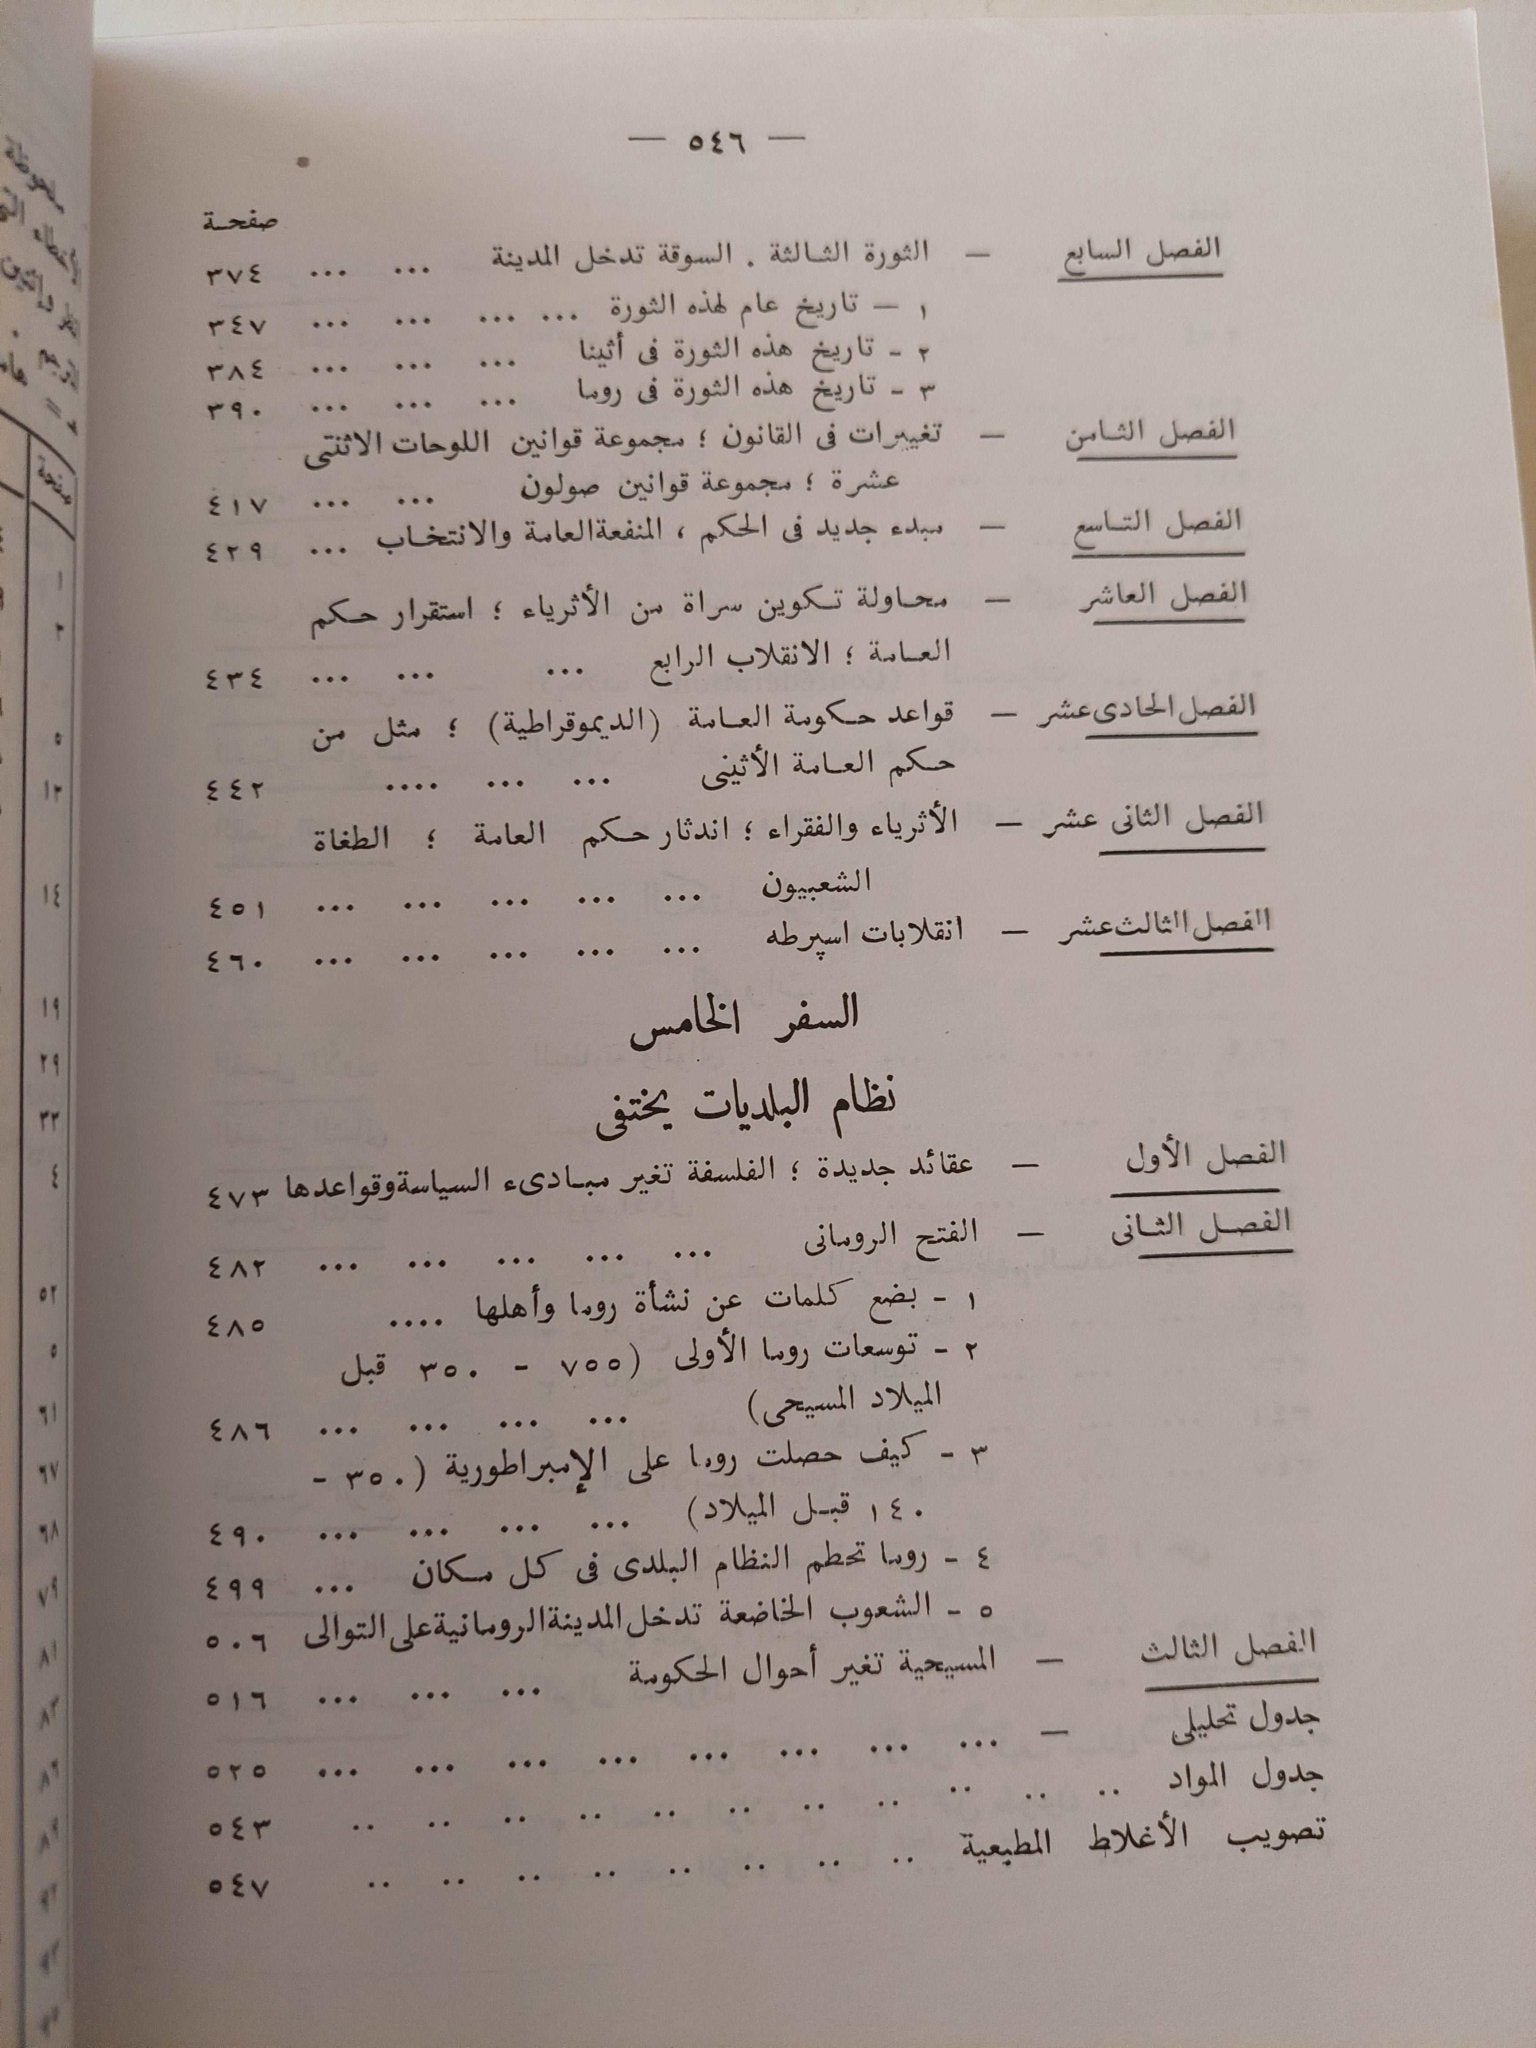 — ٥٤٦ —
صفحة
الفصل السابع — الثورة الثالثة . السوقة تدخل المدينة ... ... ٣٧٤
١ — تاريخ عام لهذه الثورة ... ... ... ... ٣٤٧
٢ - تاريخ هذه الثورة فى أثينا ... ... ... ٣٨٤
٣ - تاريخ هذه الثورة فى روما ... ... ... ٣٩٠
الفصل الثامن — تغييرات فى القانون ؛ مجموعة قوانين اللوحات الاثنتى
عشرة ؛ مجموعة قوانين صولون ... ... ٤١٧
الفصل التاسع — مبدء جديد فى الحكم ، المنفعة العامة والانتخاب ... ٤٢٩
الفصل العاشر — محاولة تكوين سراة من الأثرياء ؛ استقرار حكم
العامة ؛ الانقلاب الرابع ... ... ... ٤٣٤
الفصل الحادى عشر — قواعد حكومة العامة (الديموقراطية) ؛ مثل من
حكم العامة الأثينى ... ... .... ٤٤٢
الفصل الثانى عشر — الأثرياء والفقراء ؛ اندثار حكم العامة ؛ الطغاة
الشعبيون ... ... ... ... ... ٤٥١
الفصل الثالث عشر — انقلابات اسپرطه ... ... ... ... ... ٤٦٠
السفر الخامس
نظام البلديات يختفى
الفصل الأول — عقائد جديدة ؛ الفلسفة تغير مبادىء السياسة وقواعدها ٤٧٣
الفصل الثانى — الفتح الرومانى ... ... ... ... ... ٤٨٢
١ - بضع كلمات عن نشأة روما وأهلها .... ٤٨٥
٢ - توسعات روما الأولى (٧٥٥ - ٣٥٠ قبل
الميلاد المسيحى) ... ... ... ... ٤٨٦
٣ - كيف حصلت روما على الإمبراطورية (٣٥٠ -
١٤٠ قبل الميلاد) ... ... ... ... ٤٩٠
٤ - روما تحطم النظام البلدى فى كل مكان ... ٤٩٩
٥ - الشعوب الخاضعة تدخل المدينة الرومانية على التوالى ٥٠٦
الفصل الثالث — المسيحية تغير أحوال الحكومة ... ... ... ٥١٦
جدول تحليلى — ... ... ... ... ... ... ... ... ٥٢٥
جدول المواد .. .. .. .. .. .. .. .. .. .. .. ٥٤٣
تصويب الأغلاط المطبعية .. .. .. .. .. .. .. .. ٥٤٧
صفحة
١
٣
٥
١٢
١٤
١٩
٢٩
٣٣
٤
٥٢
٥
٦١
٦٧
٦٨
٧٩
٨١
٨٣
٨٦
٨٩